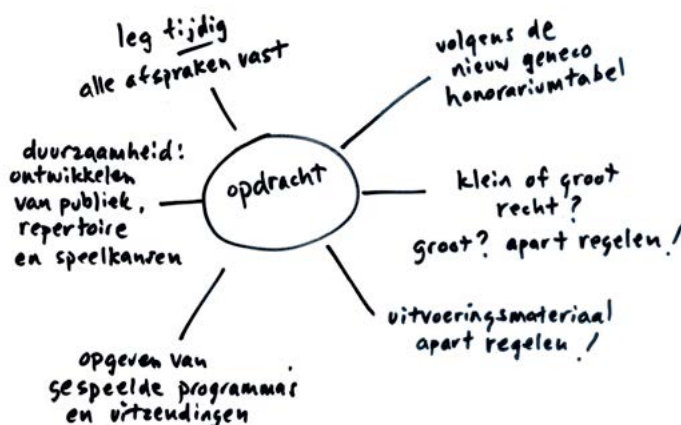 leg tijdig
alle afspraken vast
volgens de
nieuw geneco
honorariumtabel
duurzaamheid:
ontwikkelen
van publiek,
repertoire
en speelkansen
opdracht
klein of groot
recht?
groot? apart regelen!
uitvoeringsmateriaal
apart regelen!
opgeven van
gespeelde programma's
en uitzendingen